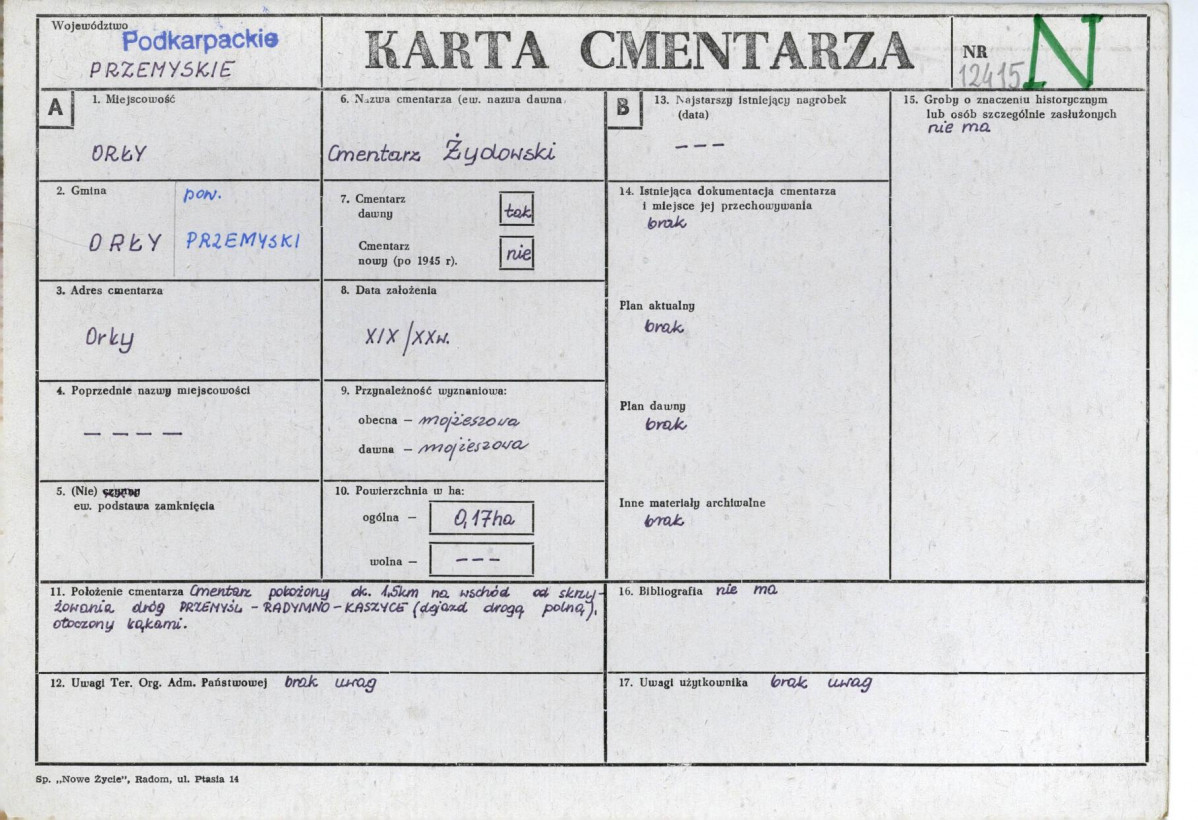 Województwo
Podkarpackie
PRZEMYSKIE
KARTA CMENTARZA
NR
12415
N
A
1. Miejscowość
ORŁY
2. Gmina
ORŁY
pow.
PRZEMYSKI
3. Adres cmentarza
Orły
4. Poprzednie nazwy miejscowości
– – – –
5. (Nie)
ew. podstawa zamknięcia
6. Nazwa cmentarza (ew. nazwa dawna
Cmentarz Żydowski
7. Cmentarz
dawny
tak
Cmentarz
nowy (po 1945 r).
nie
8. Data założenia
XIX/XXw.
9. Przynależność wyznaniowa:
obecna – mojżeszowa
dawna – mojżeszowa
10. Powierzchnia w ha:
ogólna – 0,17ha
wolna – – – –
11. Położenie cmentarza Cmentarz położony ok. 1,5km na wschód od skrzy-
żowania dróg PRZEMYŚL - RADYMNO - KASZYCE (dojazd drogą polną),
otoczony łąkami.
12. Uwagi Ter. Org. Adm. Państwowej brak uwag
B
13. Najstarszy istniejący nagrobek
(data)
– – –
14. Istniejąca dokumentacja cmentarza
i miejsce jej przechowywania
brak
Plan aktualny
brak
Plan dawny
brak
Inne materiały archiwalne
brak
15. Groby o znaczeniu historycznym
lub osób szczególnie zasłużonych
nie ma
16. Bibliografia nie ma
17. Uwagi użytkownika brak uwag
Sp. „Nowe Życie", Radom, ul. Ptasia 14